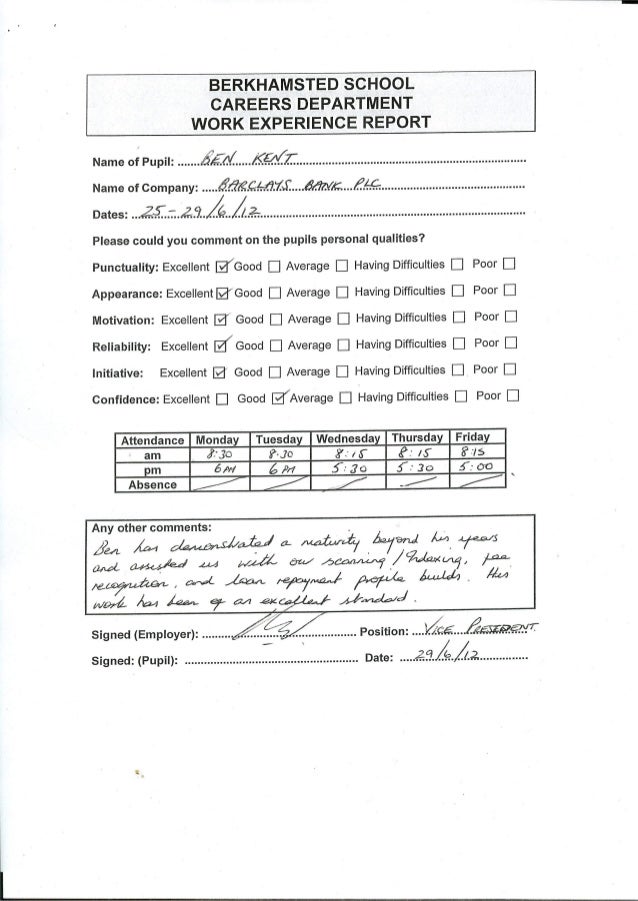 BERKHAMSTED SCHOOL
CAREERS DEPARTMENT
WORK EXPERIENCE REPORT
Name of Pupil: ......BEN KENT......
Name of Company: ....BARCLAYS BANK PLC......
Dates: ...25-29/6/12......
Please could you comment on the pupils personal qualities?
Punctuality: Excellent ☑ Good ☐ Average ☐ Having Difficulties ☐ Poor ☐
Appearance: Excellent ☑ Good ☐ Average ☐ Having Difficulties ☐ Poor ☐
Motivation: Excellent ☑ Good ☐ Average ☐ Having Difficulties ☐ Poor ☐
Reliability: Excellent ☑ Good ☐ Average ☐ Having Difficulties ☐ Poor ☐
Initiative: Excellent ☑ Good ☐ Average ☐ Having Difficulties ☐ Poor ☐
Confidence: Excellent ☐ Good ☑ Average ☐ Having Difficulties ☐ Poor ☐
Attendance Monday Tuesday Wednesday Thursday Friday
am 8:30 8.30 8:15 8:15 8:15
pm 6PM 6PM 5:30 5:30 5:00
Absence
Any other comments:
Ben has demonstrated a maturity beyond his years
and assisted us with our scanning / Indexing, fee
recognition, and loan repayment profile builds. His
work has been of an excellent standard.
Signed (Employer): ...... Position: ...VICE PRESIDENT.
Signed: (Pupil): ...... Date: ....29/6/12......